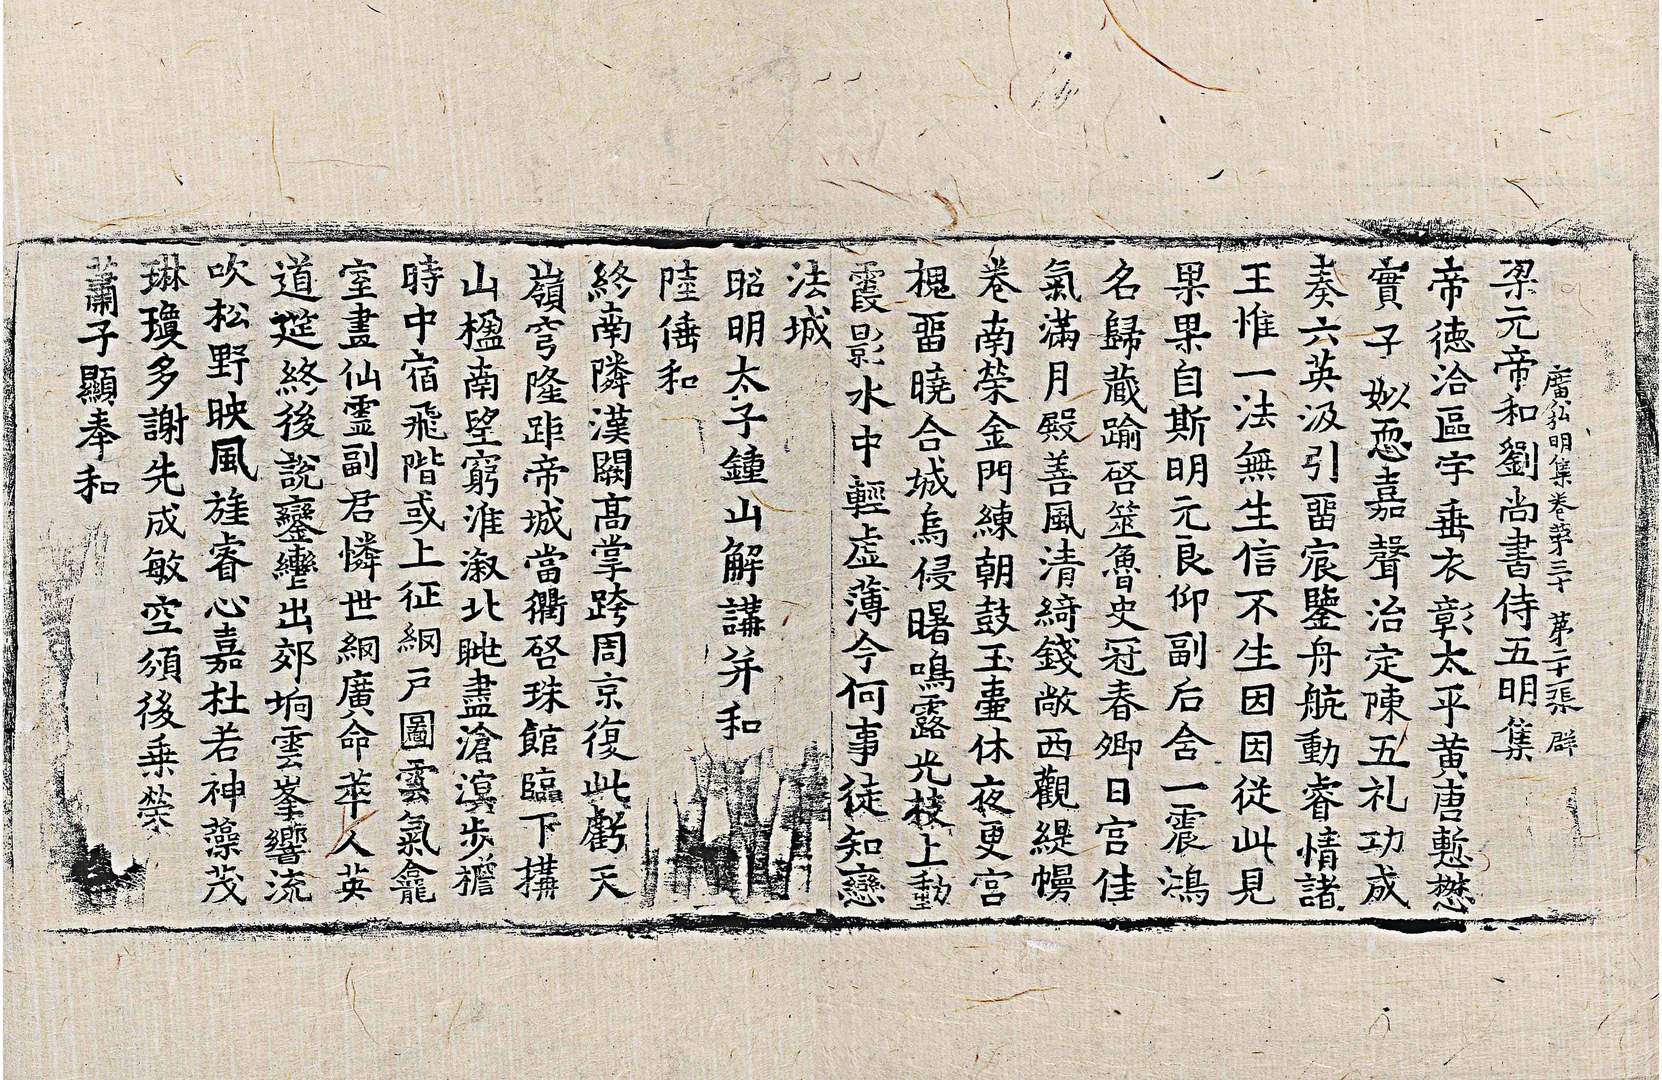 廣弘明集卷第三十 第二十張 群
梁元帝和劉尚書侍五明集
帝德洽區宇垂衣彰太平黃唐慙懋
實子姒恧嘉聲治定陳五礼功成
奏六英汲引留宸鑒舟航動睿情諸
王惟一法無生信不生因因從此見
果果自斯明元良仰副后含一震鴻
名歸藏踰啓筮魯史冠春卿日宮佳
氣滿月殿善風清綺錢敞西觀緹幔
卷南榮金門練朝鼓玉壷休夜更宮
槐留曉合城烏侵曙鳴露光枝上動
霞影水中輕虛薄今何事徒知戀
法城
昭明太子鍾山解講并和
陸倕和
終南隣漢闕高掌跨周京復此虧天
嶺穹隆距帝城當衢啓珠館臨下搆
山楹南望窮淮溆北眺盡滄溟步櫩
時中宿飛階或上征網戶圖雲氣龕
室畫仙靈副君憐世網廣命萃人英
道筵終後說鑾轡出郊坰雲峯響流
吹松野映風旌睿心嘉杜若神藻茂
琳瓊多謝先成敏空頒後乘榮
蕭子顯奉和